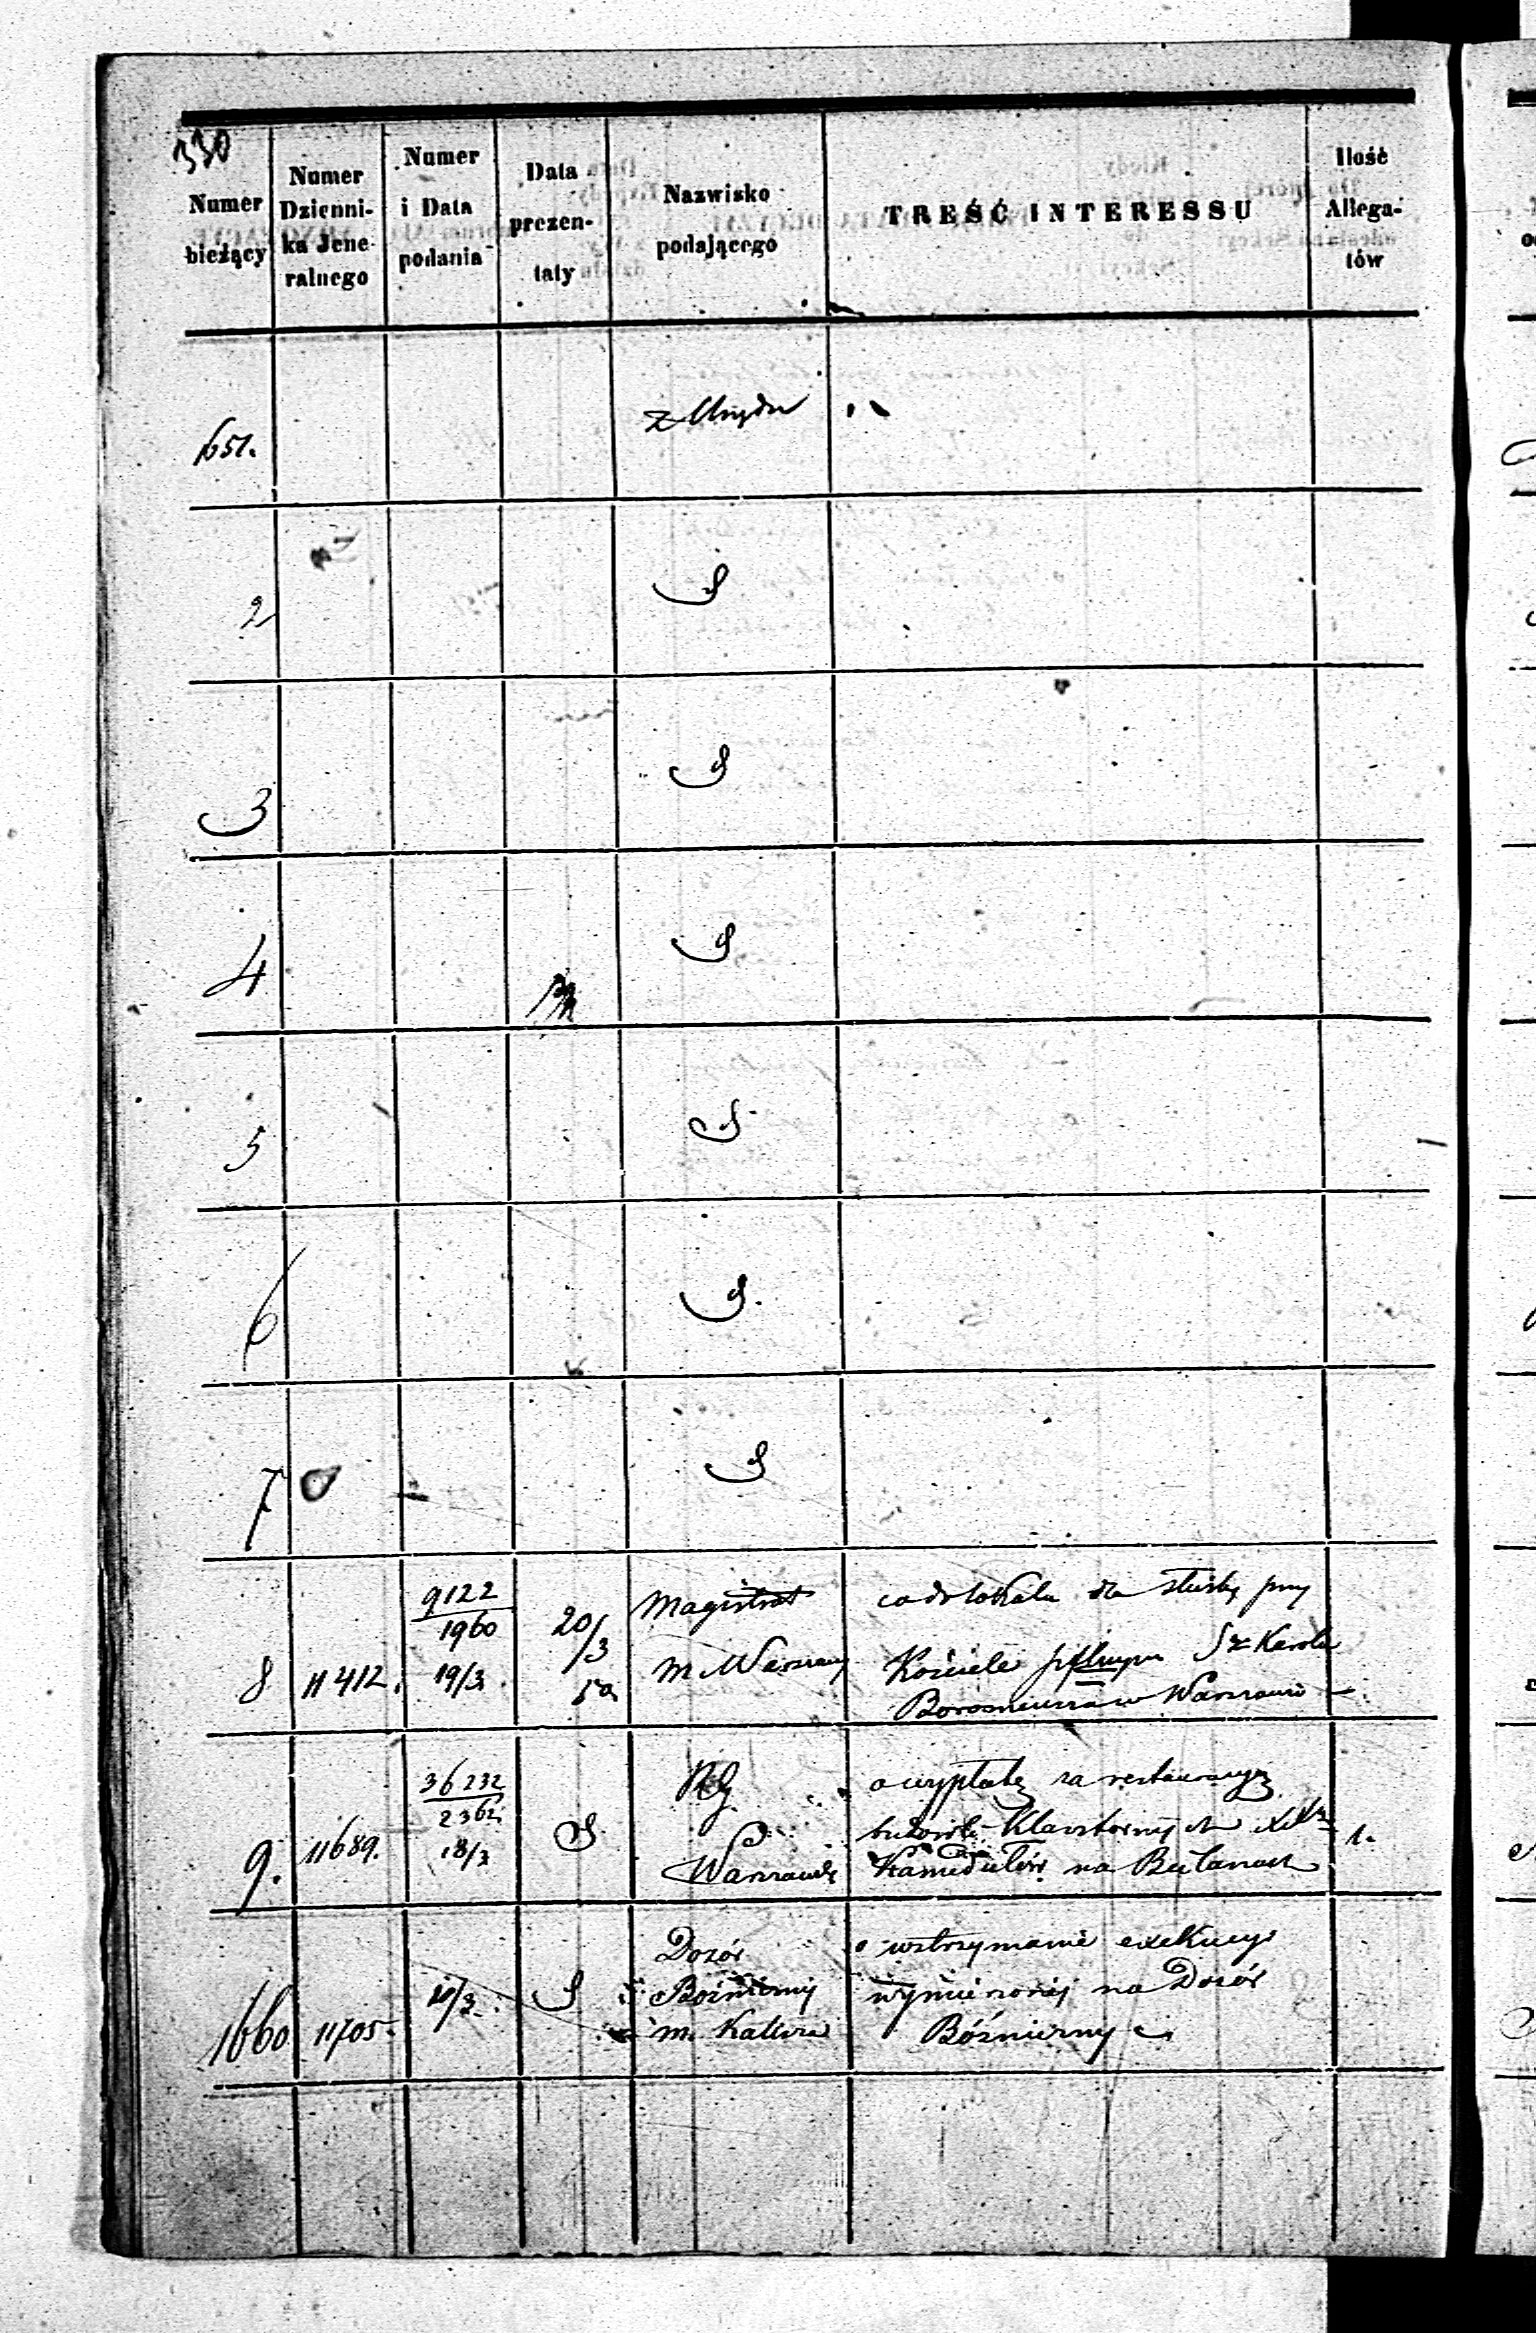 330
Numer bieżący
Numer Dzienni- ka Jene- ralnego
Numer i Data podania
Data prezen- taty
Nazwisko podającego
TREŚĆ INTERESSU
Ilość Allega- tów
1651. z Urzędu
2
3
4
5
6
7
8 11412. 9122/1960 19/3 20/3 50 Magistrat m Warszawy
co do lokalu dla służby przy
Kościele Sz Karola
Boromeusza w Warszawie
9. 11689. 36232/2362 18/3 RG Warszawski
o wypłatę za restauracyę
Klasztornych XX
Kamedułów na Bielanach
1.
1660 11705. 20/3 Dozór
Bóżniczny
m.
o wstrzymanie exekucyi
wymierzonej na Dozór
Bóżniczny